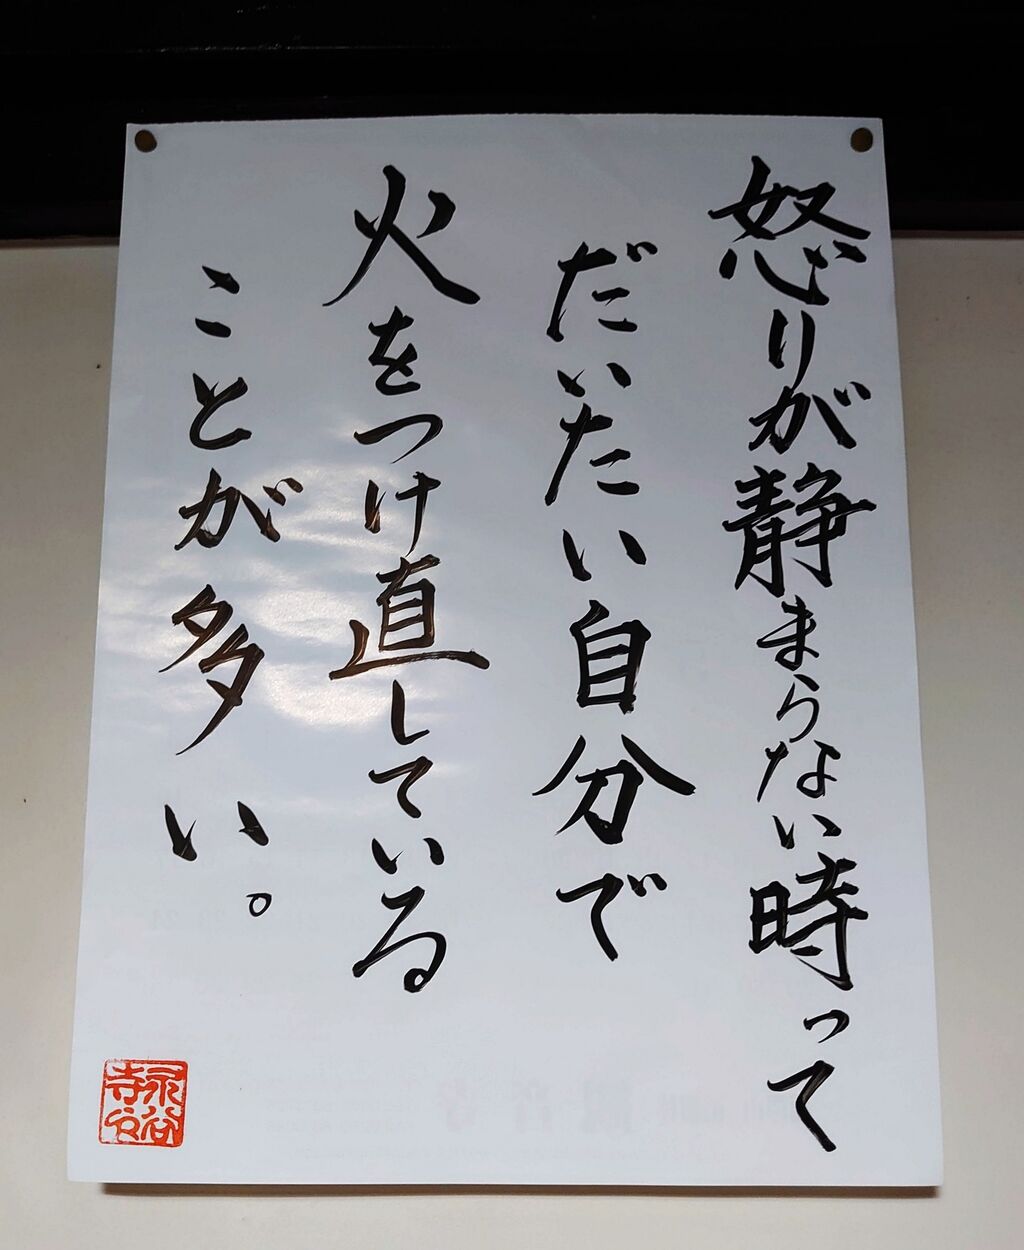 怒りが静まらない時って
だいたい自分で
火をつけ直している
ことが多い。
永谷
寺印